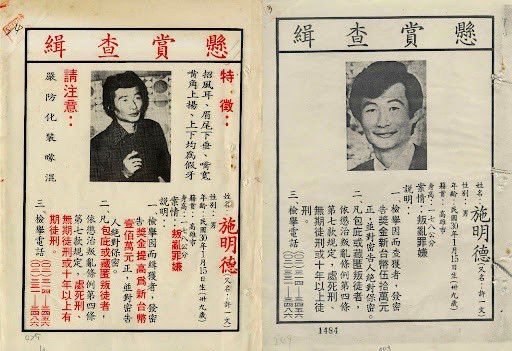 懸賞查緝
特徵：
招風耳、眉尾下垂、嘴寬
嘴角上揚、上下均為假牙
請注意：
嚴防化裝矇混
姓名：施明德(又名：許一文)
性別：男
年齡：民國30年1月15日生(卅九歲)
籍貫：高雄市
身高：一七八公分
案情：叛亂罪嫌
說明：
一、檢舉因而緝獲者，發密
告獎金提高為新台幣
壹佰萬元正，並對密告
人絕對保密。
二、凡包庇或藏匿叛徒者，
依懲治叛亂條例第四條
第七款規定，處死刑、
無期徒刑或十年以上有
期徒刑。
三、檢舉電話
懸賞查緝
姓名：施明德(又名：許一文)
性別：男
年齡：民國30年1月15日生(卅九歲)
籍貫：高雄市
身高：一七八公分
案情：叛亂罪嫌
說明：
一、檢舉因而查獲者，發密
告獎金新台幣伍拾萬元
正，並對密告人絕對保密。
二、凡包庇或藏匿叛徒者，
依懲治叛亂條例第四條
第七款規定，處死刑、
無期徒刑或十年以上有期徒
刑。
三、檢舉電話
1484